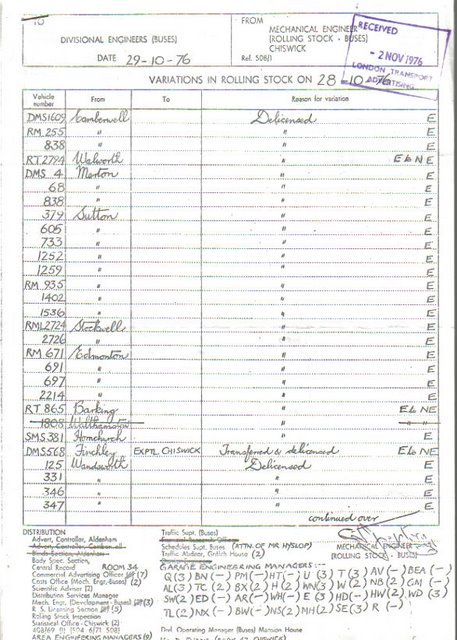 TO
FROM
DIVISIONAL ENGINEERS (BUSES)
MECHANICAL ENGINEER
(ROLLING STOCK - BUSES)
CHISWICK
DATE 29-10-76
Ref. 508/1
RECEIVED
- 2 NOV 1976
LONDON TRANSPORT
ADVERTISING
VARIATIONS IN ROLLING STOCK ON 28-10-76
Vehicle number From To Reason for variation
DMS1609 Camberwell Delicensed E
RM 255 " " E
838 " " E
RT 2794 Walworth " E to NE
DMS 4 Merton " E
68 " " E
838 " " E
379 Sutton " E
605 " " E
733 " " E
1252 " " E
1259 " " E
RM 935 " " E
1402 " " E
1536 " " E
RML2724 Stockwell " E
2726 " " E
RM 671 Edmonton " E
691 " " E
697 " " E
2214 " " E
RT 865 Barking " E to NE
1808 Walthamstow
SMS 381 Hornchurch " E
DMS568 Finchley EXPTL CHISWICK Transferred & delicensed E to NE
125 Wandsworth Delicensed E
331 " " E
346 " " E
347 " " E
continued over
MECHANICAL ENGINEER
(ROLLING STOCK - BUSES)
DISTRIBUTION
Advert. Controller, Aldenham
Body Spec. Section,
Central Record ROOM 34
Commercial Advertising Officer (7)
Costs Office (Mech. Engr.-Buses) (2)
Scientific Adviser (2)
Distribution Services Manager
Mech. Engr. Development (3)
R. S. Licensing Section (5)
Rolling Stock Inspection
Statistical Office - Chiswick (2)
AREA ENGINEERING MANAGERS (9)
Traffic Supt. (Buses)
Schedules Supt. Buses (ATTN. OF MR HYSLOP)
Traffic Adviser, Griffith House (2)
GARAGE ENGINEERING MANAGERS:-
Q(3) BN(-) PM(-) HT(-) U(3) T(3) AV(-) BEA(-)
AL(3) TC(2) BX(2) H(2) WN(3) W(2) NB(2) GM(-)
SW(2) ED(-) AR(-) WH(-) E(3) HD(-) HW(2) WD(3)
TL(2) NX(-) BW(-) NS(2) MH(2) SE(3) R(-)
Divl. Operating Manager (Buses) Mansion House